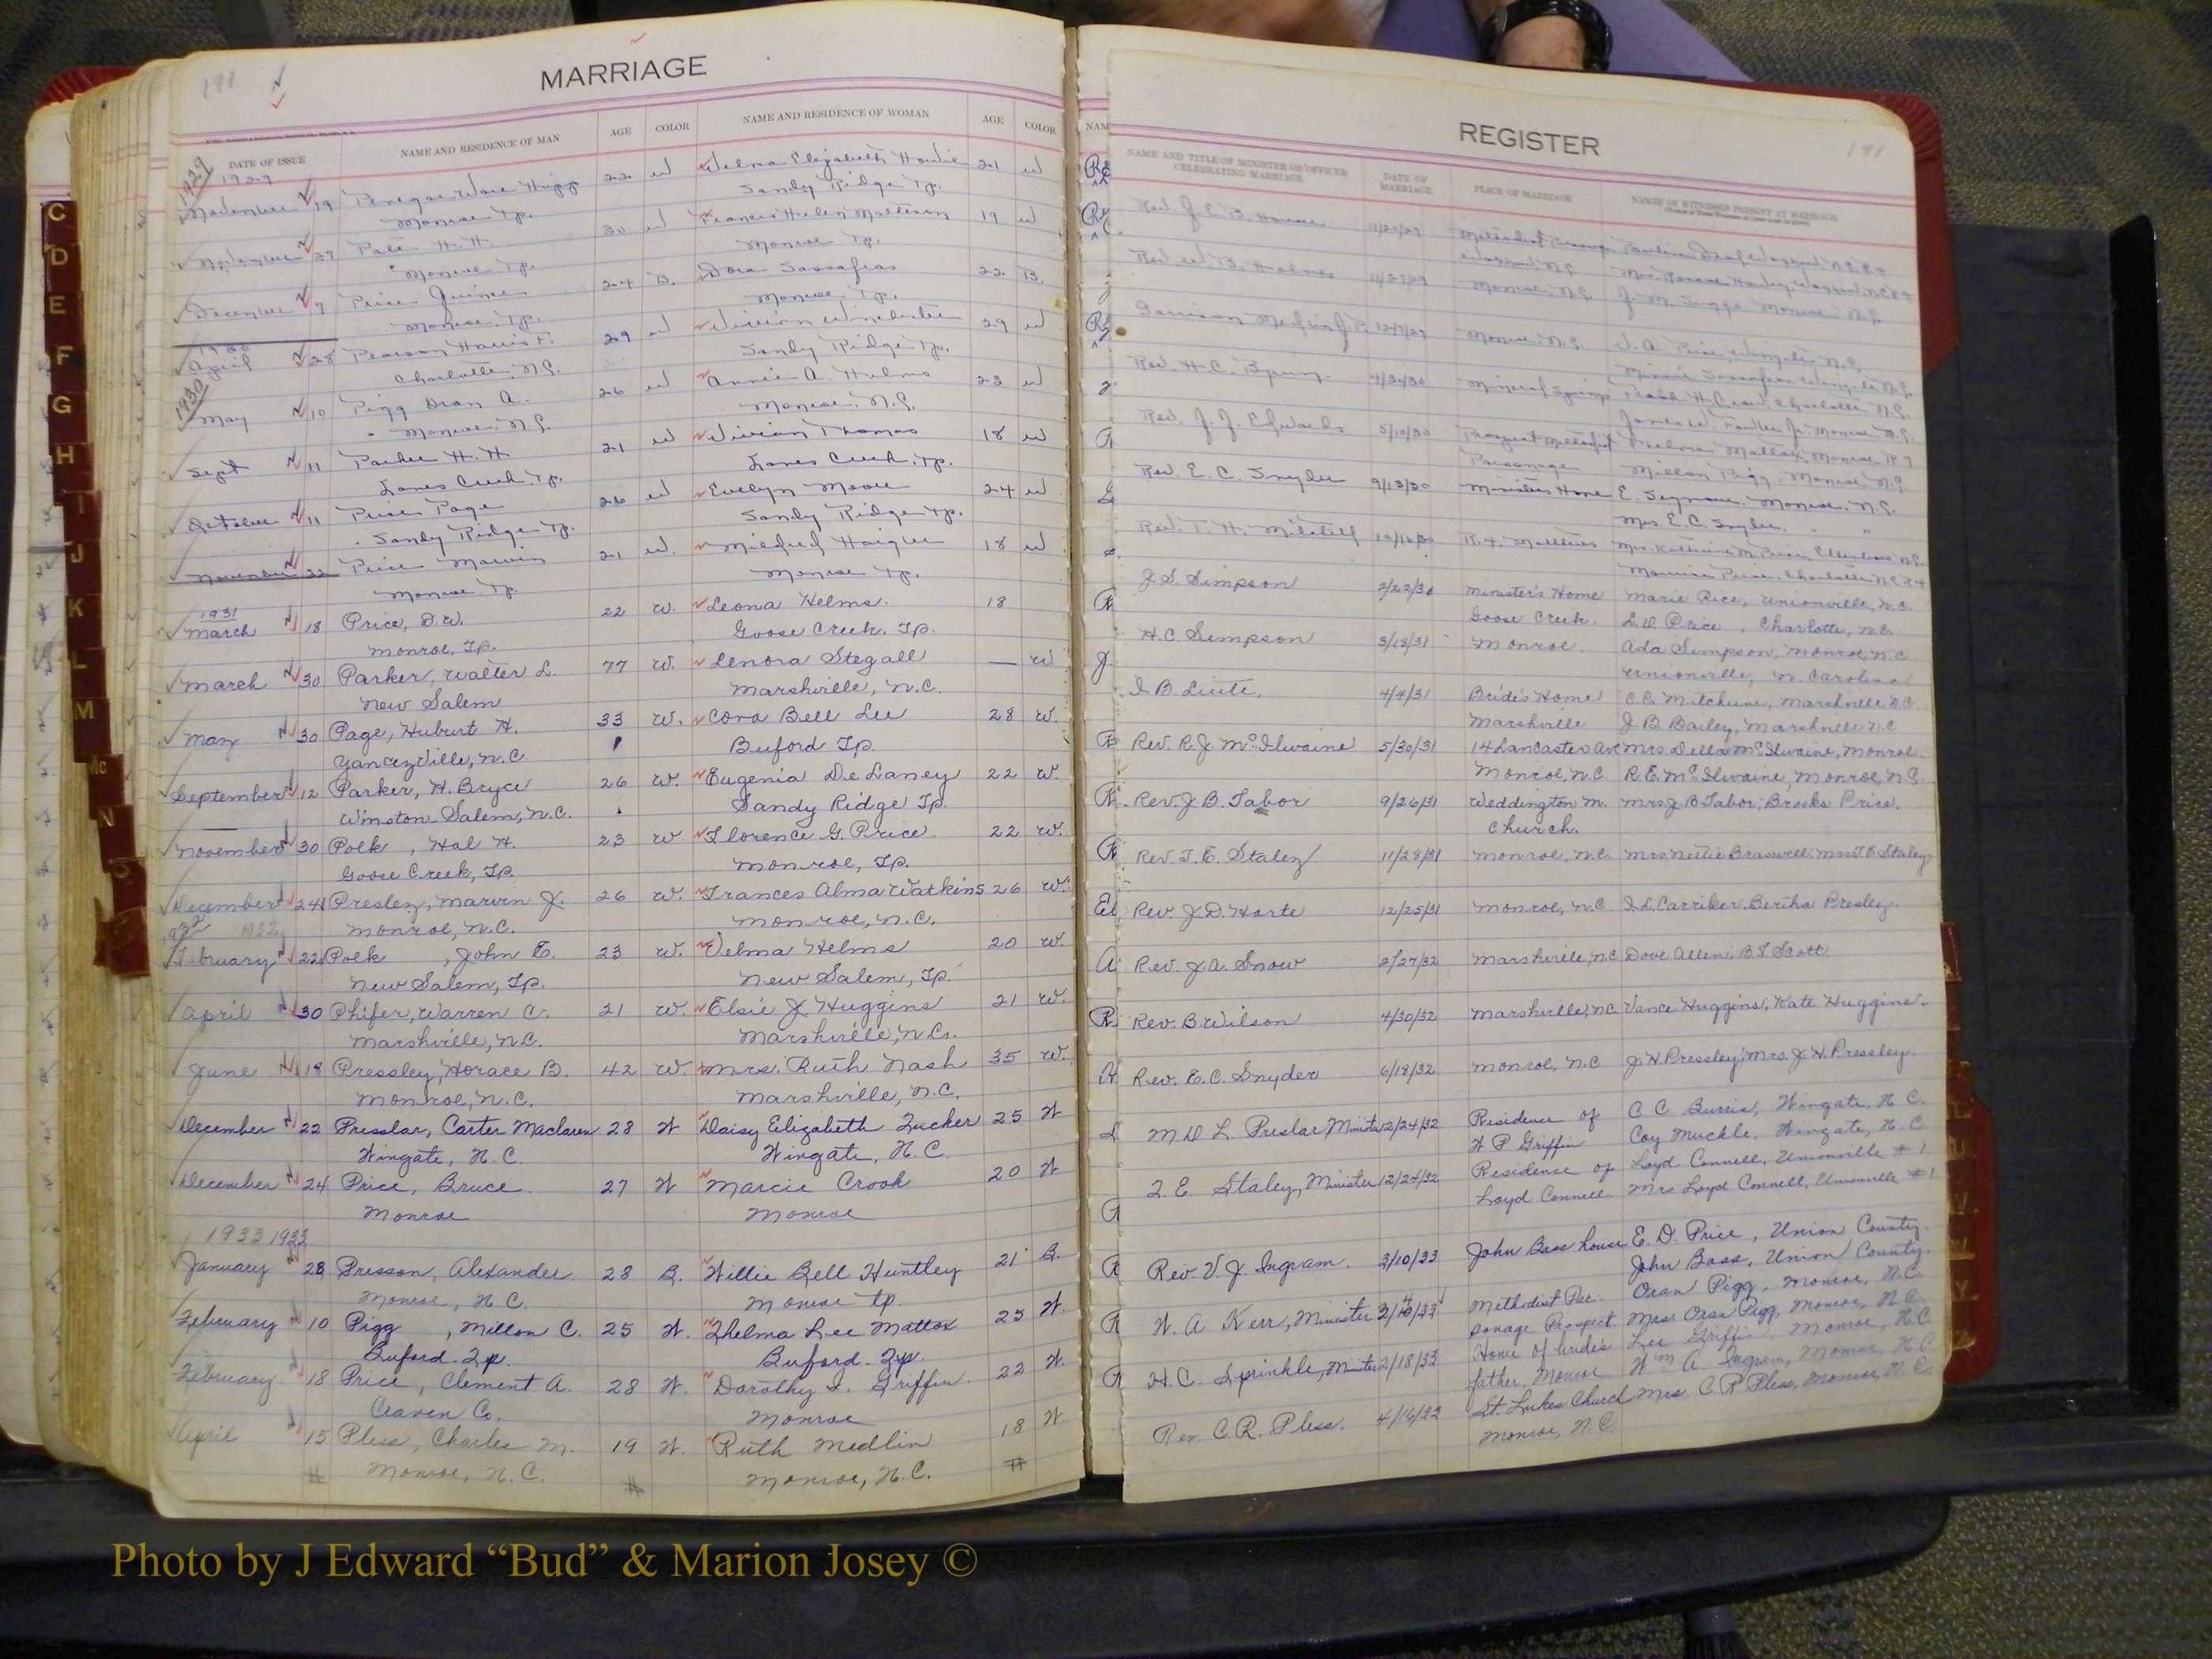 191
MARRIAGE
DATE OF ISSUE
NAME AND RESIDENCE OF MAN
AGE
COLOR
NAME AND RESIDENCE OF WOMAN
AGE
COLOR
1929
1929
November 19 22 W Elizabeth 21 W
Monroe Tp. Sandy Ridge Tp.
November 27 H. H. 30 W Francis Helen 19 W
Monroe Tp. Monroe Tp.
December 7 Price Quince 24 B. Dora Sassafras 22 B.
Monroe, Tp. Monroe Tp.
1930
April 28 Pearson 29 W Vivian Winchester 29 W
Charlotte, N.C. Sandy Ridge Tp.
1930
May 10 Pigg Oran A. 26 W Annie A. Helms 23 W
Monroe, N.C. Monroe, N.C.
Sept 11 Parker H. H. 21 W Vivian Thomas 18 W
Lanes Creek, Tp. Lanes Creek, Tp.
October 11 Price Page 26 W Evelyn Moore 24 W
Sandy Ridge Tp. Sandy Ridge Tp.
November 22 Price Marvin 21 W. Mildred Haigler 18 W
Monroe Tp. Monroe Tp.
1931
March 18 Price, D.W. 22 W. Leona Helms. 18
Monroe, Tp. Goose Creek, Tp.
March 30 Parker, Walter L. 77 W. Lenora Stegall — W
New Salem Marshville, N.C.
May 30 Page, Hubert H. 33 W. Cora Bell Lee 28 W.
Yanceyville, N.C Buford Tp.
September 12 Parker, H. Bryce 26 W. Eugenia De Laney 22 W.
Winston Salem, N.C. Sandy Ridge Tp.
November 30 Polk , Hal H. 23 W Florence G. Price. 22 W.
Goose Creek, Tp. Monroe, Tp.
December 24 Presley, Marvin J. 26 W. Frances Alma Watkins 26 W.
932 1932 Monroe, N.C. Monroe, N.C.
February 22 Polk , John E. 23 W. Velma Helms 20 W.
New Salem, Tp. New Salem, Tp.
April 30 Phifer, Warren C. 21 W. Elsie J. Huggins 21 W.
Marshville, N.C. Marshville, N.C.
June 18 Pressley, Horace B. 42 W. Mrs. Ruth Nash 35 W.
Monroe, N.C. Marshville, N.C.
December 22 Presslar, Carter Maclaren 28 W Daisy Elizabeth Tucker 25 W
Wingate, N.C. Wingate, N.C.
December 24 Price, Bruce 27 W Marcie Crook 20 W
Monroe Monroe
1933 1933
January 28 Presson, Alexander 28 B. Willie Bell Huntley 21 B.
Monroe, N.C. Monroe tp.
February 10 Pigg , Millon C. 25 W. Thelma Lee Mattox 25 W.
Buford Tp. Buford Tp.
February 18 Price, Clement A. 28 W. Dorothy I. Griffin 22 W.
Craven Co. Monroe
April 15 Pless, Charles M. 19 W. Ruth Medlin 18 W.
# Monroe, N.C. # Monroe, N.C. #
REGISTER
191
NAM
NAME AND TITLE OF MINISTER OR OFFICER CELEBRATING MARRIAGE
DATE OF MARRIAGE
PLACE OF MARRIAGE
NAMES OF WITNESSES PRESENT AT MARRIAGE
Rev. J. E. B. Houser
Rev. W. B. Holmes 11/27/29 Monroe, N.C.
Garrison 12/7/29 Monroe, N.C.
Rev. H. C. 4/30/30 Mineral Springs Charlotte N.C.
Rev. J. J. Edwards 5/10/30 Prospect Methodist Thelma Mattox, Monroe
Parsonage Millon Pigg, Monroe, N.C.
Rev. E. C. Snyder 9/13/30 Ministers Home E. Seymour, Monroe, N.C.
Mrs. E. C. Snyder " "
Rev. T. H. Mitchell
J S Simpson Minister's Home Marie Rice, Unionville, N.C.
Goose Creek. L.D. Price , Charlotte, N.C.
H. C. Simpson 3/18/31 Monroe. Ada Simpson, Monroe, N.C
Unionville, N. Carolina
4/4/31 Bride's Home Marshville N.C.
Marshville J B Bailey, Marshville N.C
Rev. R. J. McIlwaine 5/30/31 14 Lancaster Ave Mrs Della McIlwaine, Monroe.
Monroe, N.C. R. E. McIlwaine, Monroe, N.C.
Rev. J. B. Tabor 9/26/31 Weddington M. Mrs J B Tabor; Brooks Price.
Church.
Rev. T. E. Staley 11/28/31 Monroe, N.C. Mrs Nettie Braswell; Mrs T E Staley
Rev. J. D. Harte 12/25/31 Monroe, N.C. Carriker. Bertha Presley.
Rev. J. A. Snow 2/27/32 Marshville, N.C Dove Allen; B F Scott
Rev. B Wilson 4/30/32 Marshville, N.C Vance Huggins; Kate Huggins.
Rev. E. C. Snyder 6/18/32 Monroe, N.C. J. H. Pressley; Mrs. J. H. Pressley.
M D L Preslar Minister 12/24/32 Residence of C. C. Burris, Wingate, N.C.
W P Griffin Coy Muckle, Wingate, N.C
T. E. Staley, Minister 12/24/32 Residence of Loyd Connell, Unionville #1
Loyd Connell. Mrs Loyd Connell, Unionville #1
Rev. V. J. Ingram. 3/10/33 John Bass house E. D. Price, Union County
John Bass, Union County.
W. A Kerr, Minister Methodist Par- Oran Pigg, Monroe, N.C.
sonage Prospect. Mrs Oran Pigg, Monroe, N.C.
H. C. Sprinkle, Minister 2/18/33 Home of brides Lee Griffin, Monroe, N.C.
father, Monroe Wm A Ingram, Monroe, N.C
Rev. C. R. Pless. 4/16/33 St. Lukes Church Mrs. C. R. Pless, Monroe, N.C.
Monroe, N.C.
C
D
E
F
G
H
I
J
K
L
M
Mc
N
O
Photo by J Edward “Bud” & Marion Josey ©